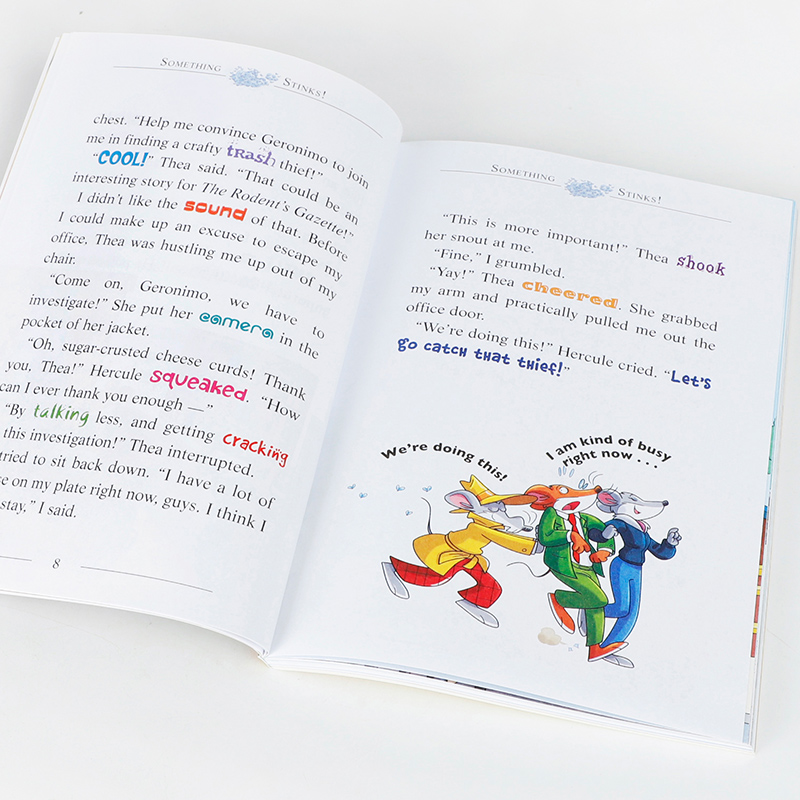 SOMETHING STINKS!
chest. “Help me convince Geronimo to join
me in finding a crafty trash thief!”
“COOL!” Thea said. “That could be an
interesting story for The Rodent’s Gazette!”
I didn’t like the sound of that. Before
I could make up an excuse to escape my
office, Thea was hustling me up out of my
chair.
“Come on, Geronimo, we have to
investigate!” She put her camera in the
pocket of her jacket.
“Oh, sugar-crusted cheese curds! Thank
you, Thea!” Hercule squeaked. “How
can I ever thank you enough —”
“By talking less, and getting cracking
this investigation!” Thea interrupted.
tried to sit back down. “I have a lot of
e on my plate right now, guys. I think I
stay,” I said.
8
SOMETHING STINKS!
“This is more important!” Thea shook
her snout at me.
“Fine,” I grumbled.
“Yay!” Thea cheered. She grabbed
my arm and practically pulled me out the
office door.
“We’re doing this!” Hercule cried. “Let’s
go catch that thief!”
We’re doing this!
I am kind of busy
right now . . .